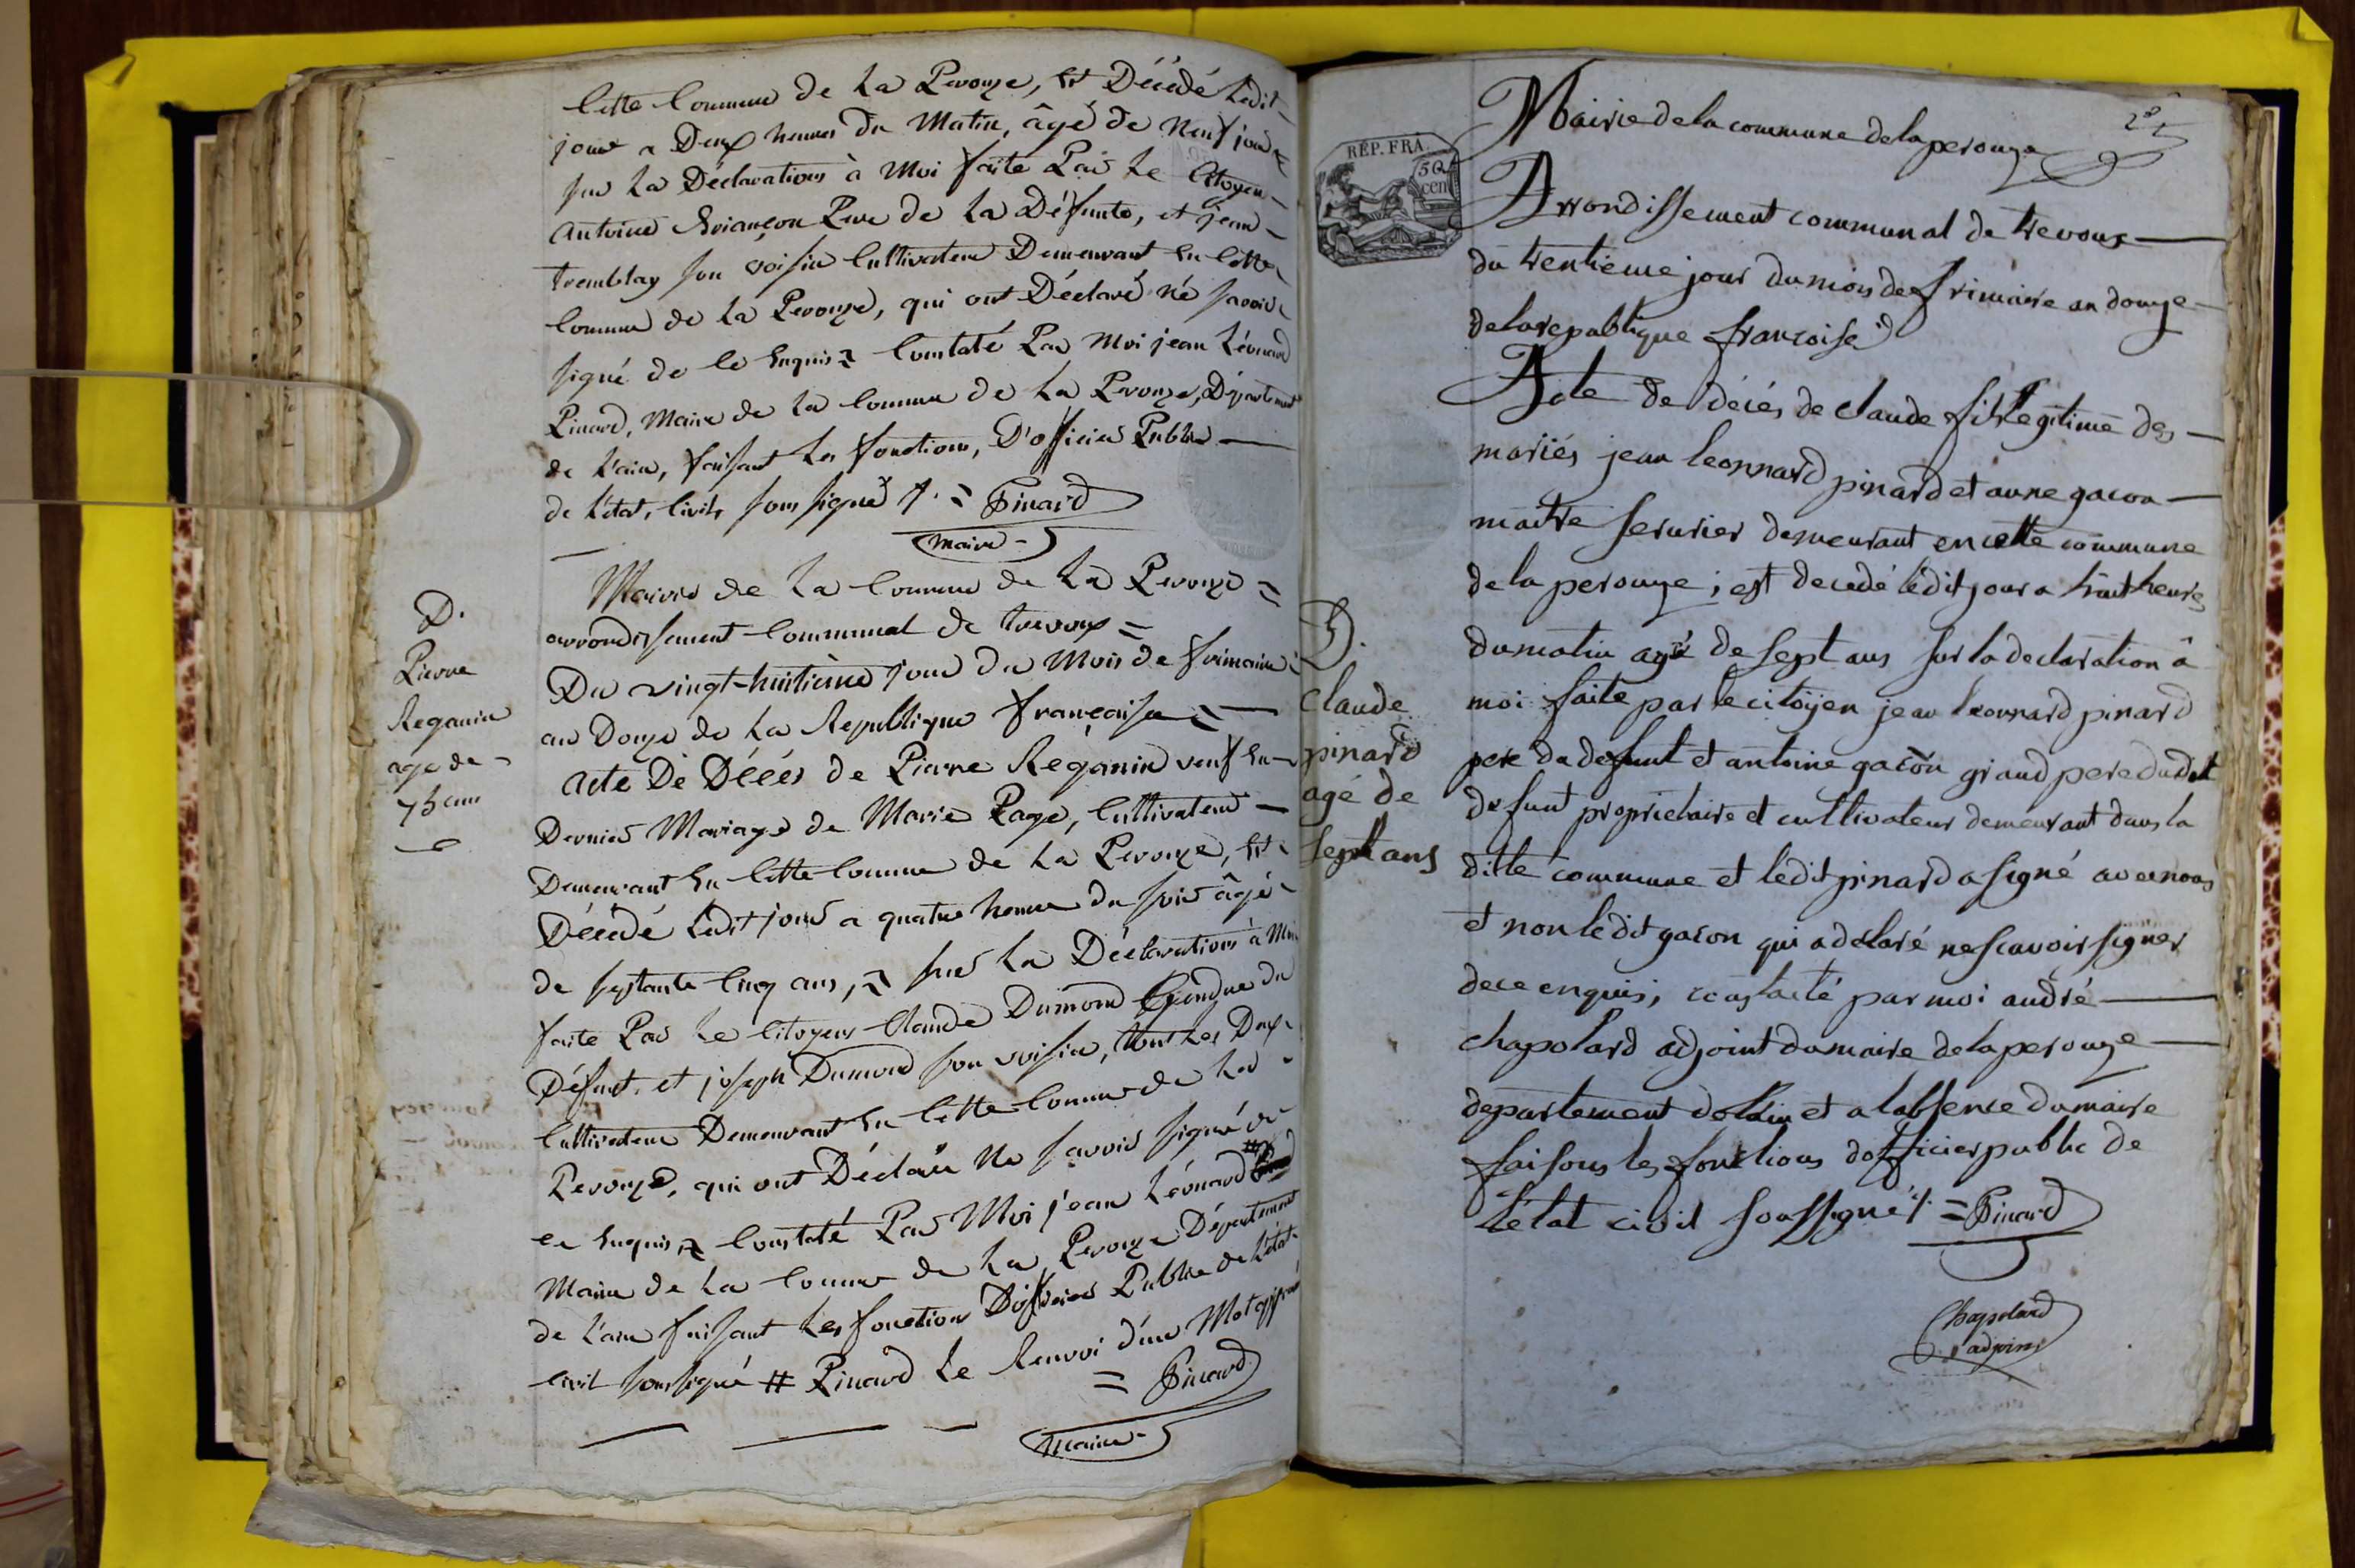 Cette Commune de La Perouze, Est Décédé Ledit
jour a Deux heures du Matin, âgé de Neuf jours
sur La Déclaration à Moi faite Par Le Citoyen
antoine Briançon Pere de La Défunte, et jean
tremblay son voisin Cultivateur Demeurant En Cette
Commune de La Perouze, qui ont Déclaré né savoir
signé de Ce Enquis = Constaté Par Moi jean Léonard
Pinard, Maire de La Commune de La Perouze, Département
de L'ain, faisant Les fonctions, D'officier Public
de L'état, Civil, sous signé /. = Pinard
Maire
Mairie de La Commune de La Perouze =
arrondissement Communal de trevoux =
Du vingt-huitième jour du Mois de frimaire
an Douze de La République française =
acte De Décés de Pierre Reganin veuf En
Dernier Mariage de Marie Page, Cultivateur
Demeurant En Cette Commune de La Perouze, Est
Décédé Ledit jour a quatre heures du soir âgé
de septante Cinq ans, = sur La Déclaration à Moi
faite Par Le Citoyens Claude Dumond Gendre du
Défunt, et joseph Dumond son voisin, tout Les Deux
Cultivateur Demeurant En Cette Commune de La
Perouze, qui ont Déclaré Ne savoir signé de
ce Enquis, = Constaté Par Moi jean Léonard #
Maire de La Commune de La Perouze Département
de L'ain faisant Les fonction D'officier Public de L'état
Civil sous signé # Pinard Le Renvoi d'un Mot approuvé
= Pinard
Maire
D.
Pierre
Reganin
age de
75 ans
Mairie de la commune de la perouze
Arrondissement communal de trevoux
du trentieme jour du mois de frimaire an douze
de la republique françoise
Acte de décés de claude fils legitime des
mariés jean leonnard pinard et anne gacon
maitre serurier demeurant en cette commune
de la perouze ; est decedé ledit jour a huit heures
du matin agé de sept ans sur la declaration â
moi faite par le citoÿen jean leonnard pinard
pere du defunt et antoine gacon grand pere dudit
defunt proprietaire et cultivateur demeurant dans la
ditte commune et ledit pinard a signé avec nous
et non ledit gacon qui a déclaré ne scavoir signer
de ce enquis, constaté par moi andré
chapolard adjoint du maire de la perouze
departement de lain et a l'absence du maire
faisons les fonctions dofficier public de
l'état civil soussigné /. = Pinard
Chapolard
adjoint
D.
claude
pinard
agé de
sept ans
REP. FRA.
50
cen